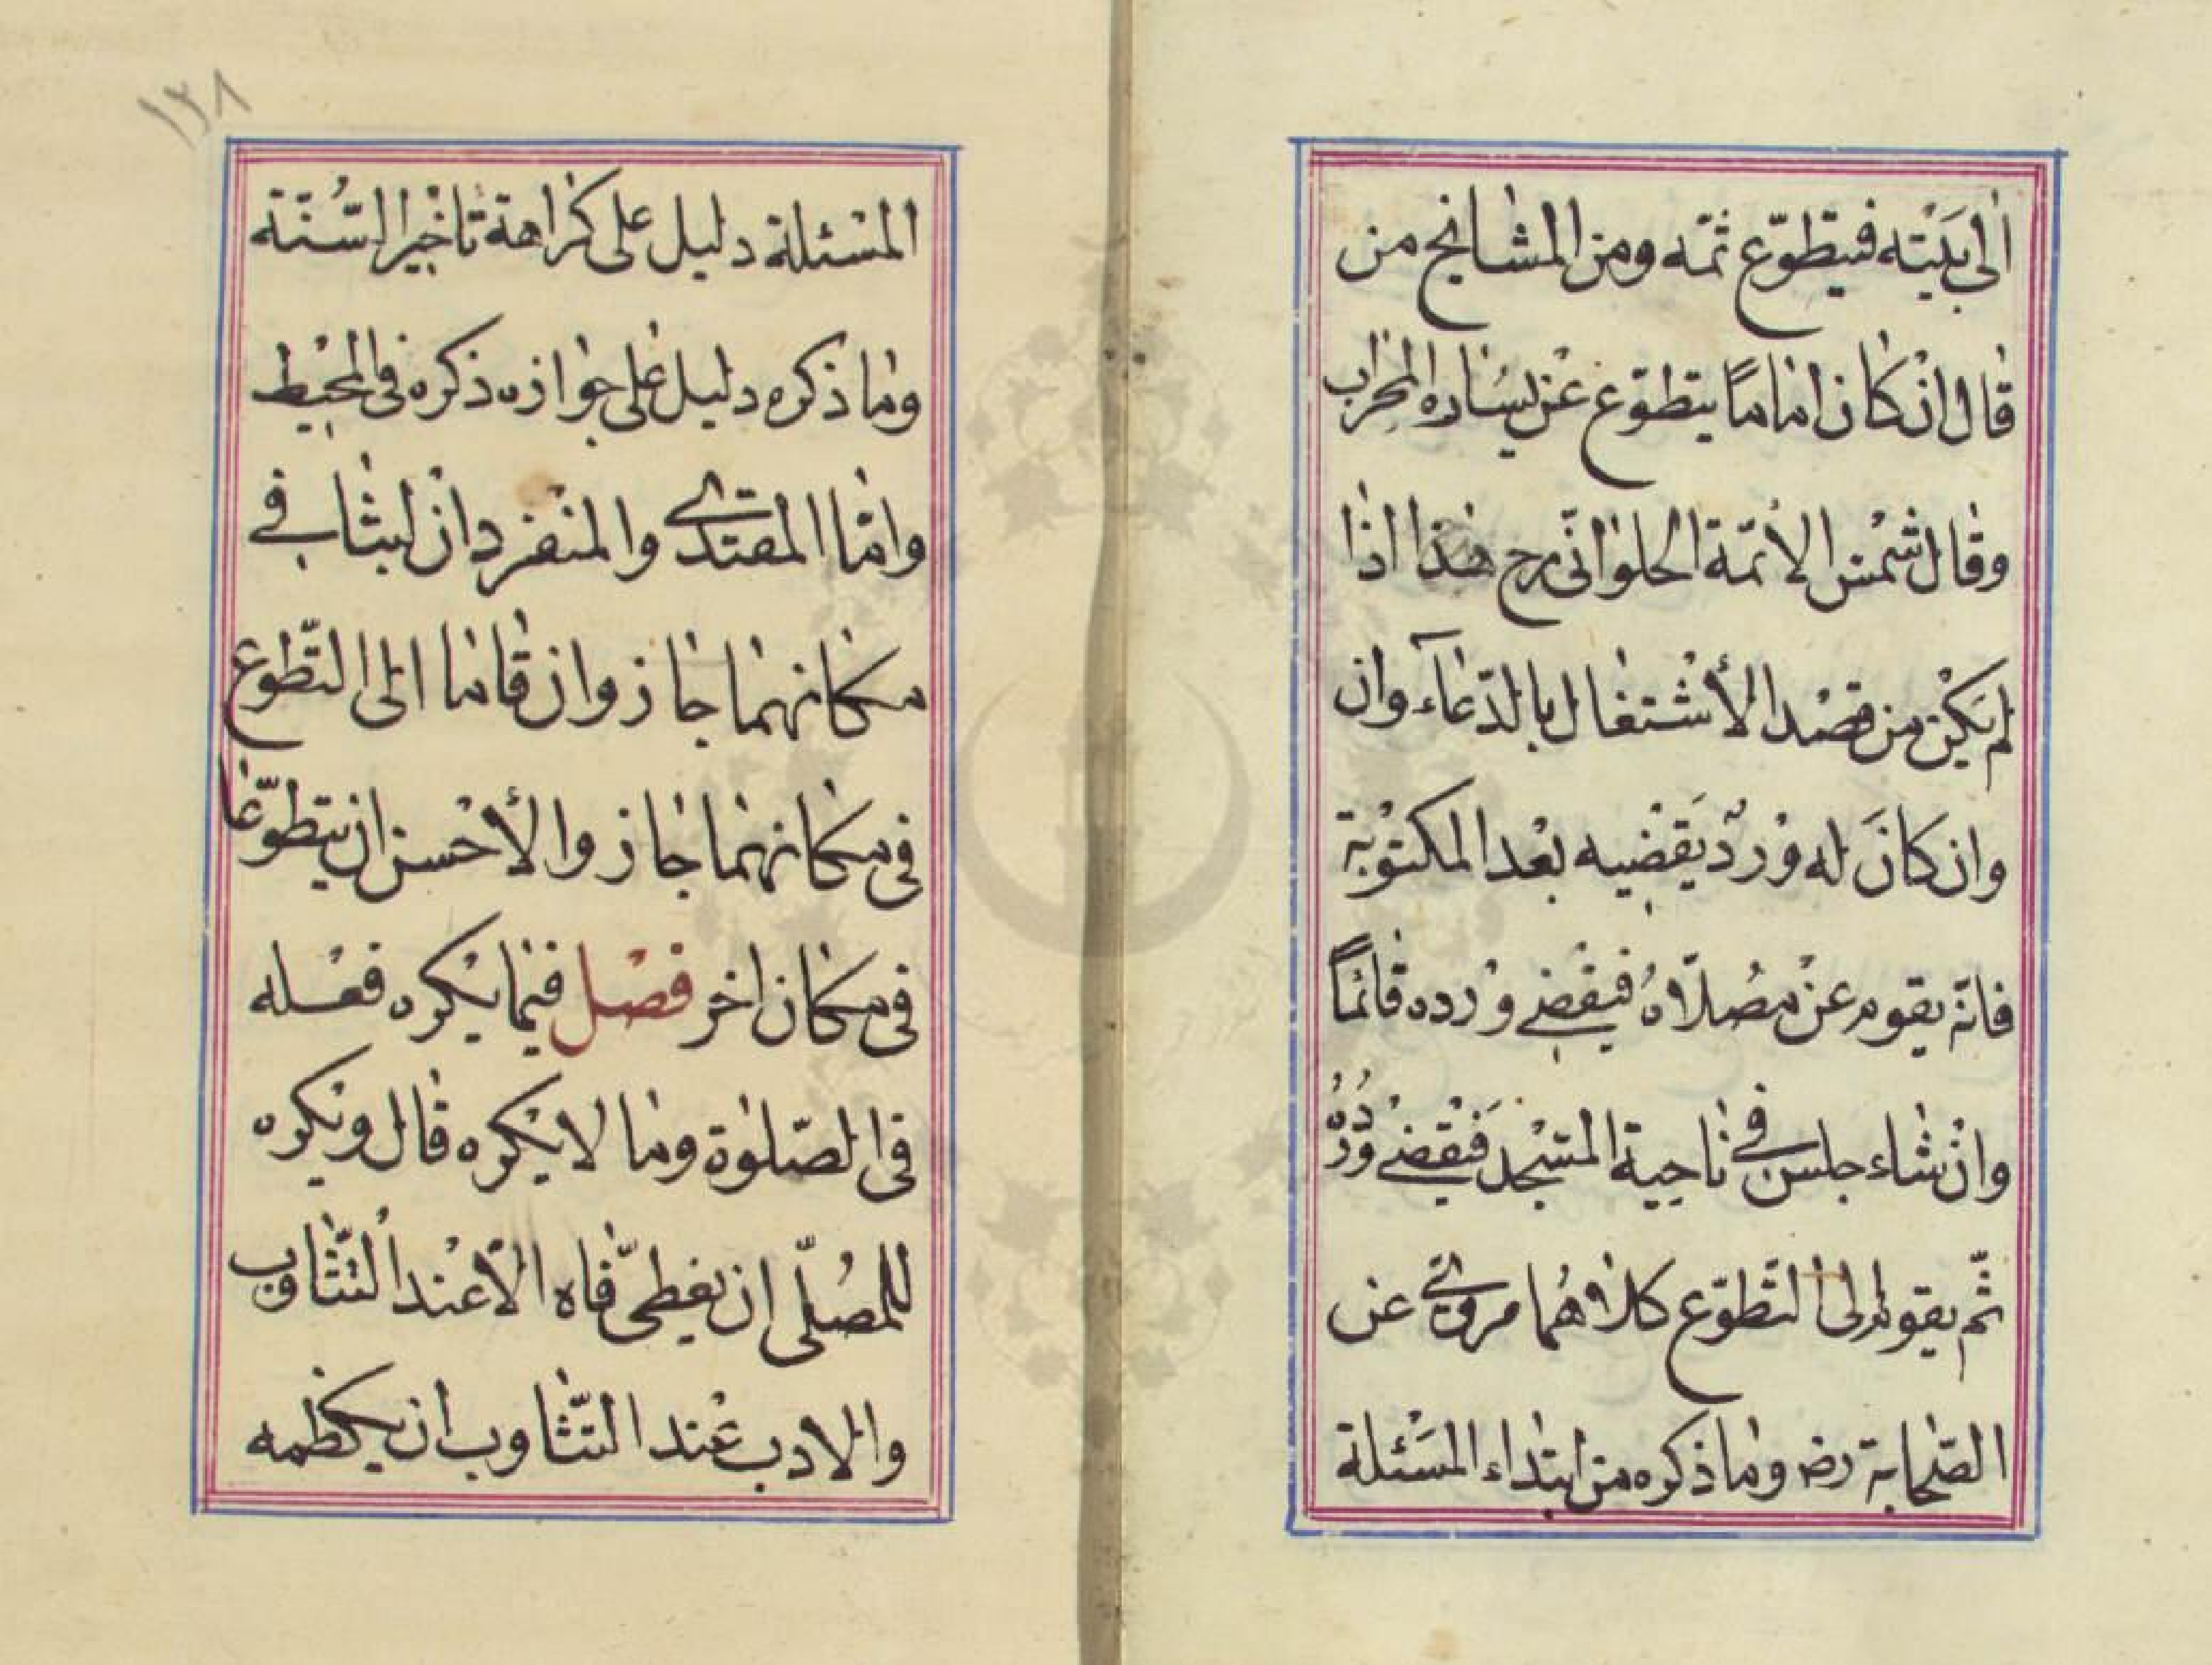 الى بَيْته فيتطوّع ثمّه ومن المشايخ من
قال ان كان اماماً يتطوّع عن يساره المحراب
وقال شمس الأئمّة الحلوانّى رح هذا اذا
لم يكن من قصد الأشتغال بالدّعآء وان
وان كانَ له وْردٌ يَقضْيه بعْد المكتوْبة
فانّه يقوم عنْ مصُلّاهُ فيقضى وْرده قائماً
وانْ شاء جلس في ناحِية المسْجد فَيقْضىْ وْردُهُ
ثّم يقوم الى التّطوّع كلاهُما مروىّ عن
الصّحابة رض وما ذكره من ابتداء المسَئلة
١٢٨
المسْئلة دليل على كراهة تاخْير السُّنّة
وما ذكره دليل على جوازه ذكره فى المحيْط
وامّا المقتدى والمنفرد ان لبثا في
مكانهما جاز وان قاما الى التّطوع
فى مكانهما جاز والأحْسن ان يتطوّعا
فى مكان اخر فصْل فيما يكره فعْله
فى الصّلوٰة وما لا يكْره قال ويكره
للمصُلّى ان يغطىّ فاه الّا عنْد التّثاوُب
والادب عنْد التّثاوب ان يكظمه